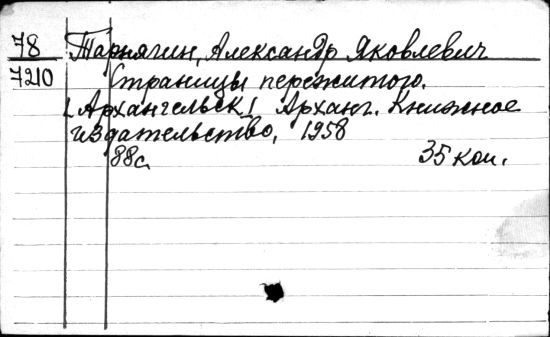 78 Тарнягин, Александр Яковлевич
7210 Страницы пережитого.
[Архангельск] Арханг. Книжное
издательство, 1958
88с. 35 коп.